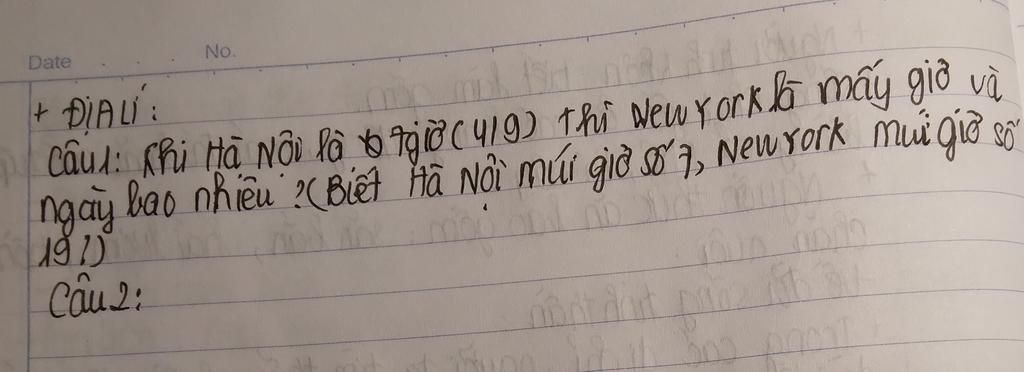 Date No.
+ ĐỊA LÍ:
Câu1: Khi Hà Nội là 7giờ (4/9) thì New York là mấy giờ và
ngày bao nhiêu? (Biết Hà Nội múi giờ số 7, New York múi giờ số
19?)
Câu2: